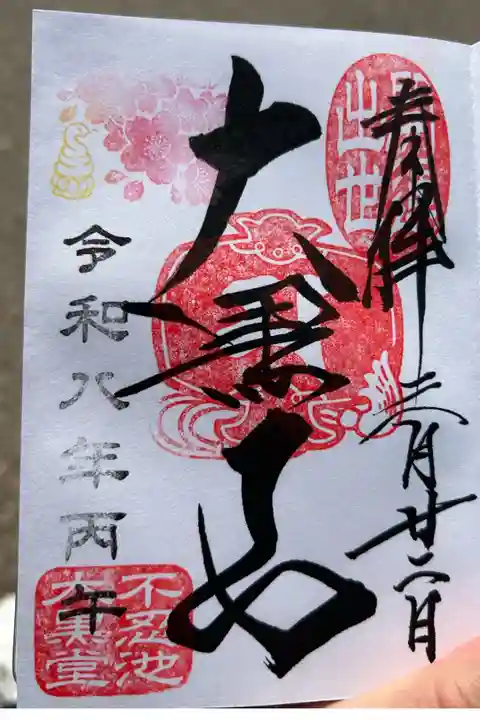 奉拝 三月廿二日
出世
大黒天
令和八年丙午
不忍池
大黒堂